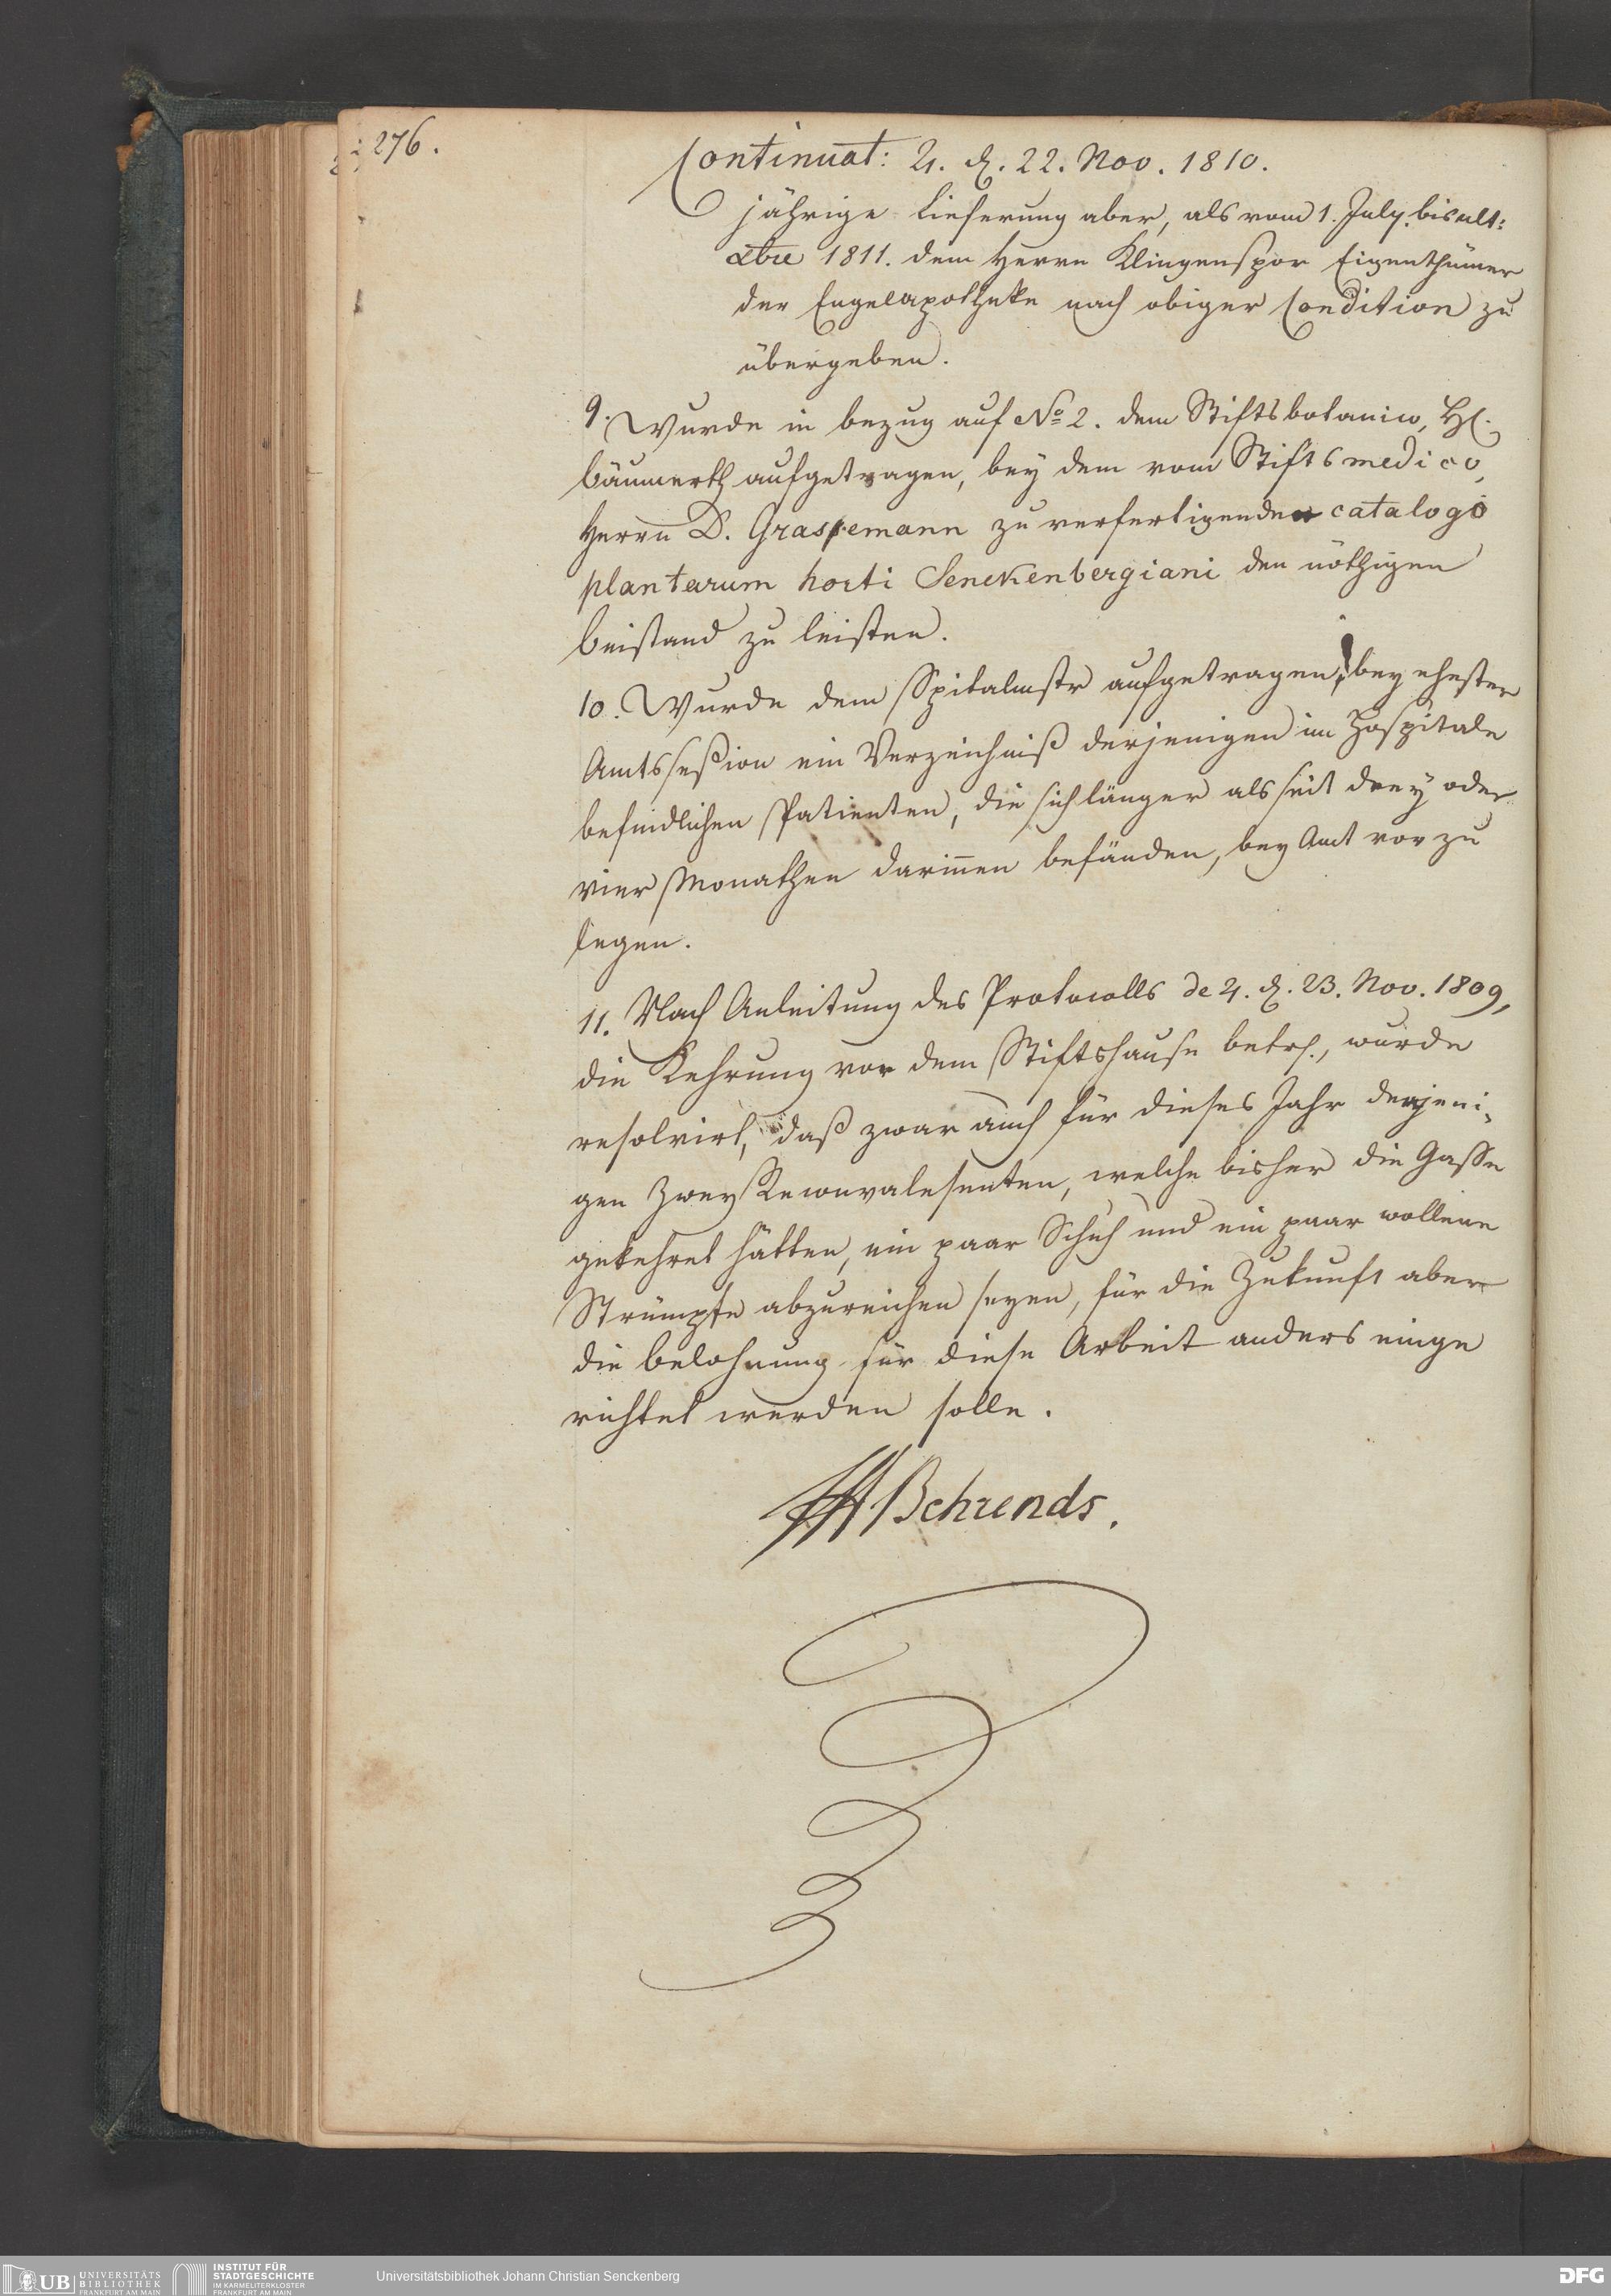 276.
Continuat: ♃. d. 22. Nov. 1810.
jährige Lieferung aber, als vom 1. July. bis ult:
Xbre 1811. dem Herrn Klingenspor Eigenthümer
der Engelapotheke nach obiger Condition zu
übergeben.
9. Wurde in bezug auf No 2. dem Stiftsbotanico, H.
Bäumerth aufgetragen, bey dem vom Stiftsmedico,
Herrn D. Grasemann zu verfertigenden catalogo
plantarum horti Senckenbergiani den nöthigen
Beistand zu leisten.
10. Wurde dem Spitalmstr aufgetragen, bey ehester
Amtsseßion ein Verzeichniß derjenigen im Hospitale
befindlichen Patienten, die sich länger als seit drey oder
vier Monathen darinnen befänden, bey Amt vor zu
legen.
11. Nach Anleitung des Protocolls de ♃. d. 23. Nov. 1809,
die Kehrung vor dem Stiftshause betr., wurde
resolvirt, daß zwar auch für dieses Jahr denjeni-
gen zwey Reconvalesenten, welche bisher die Gasse
gekehret hätten, ein paar Schuh und ein paar wollene
Strümpfe abzureichen seyen, für die Zukunft aber
die Belohnung für diese Arbeit anders einge
richtet werden solle.
Behrends.
UB UNIVERSITÄTS
BIBLIOTHEK
FRANKFURT AM MAIN
INSTITUT FÜR
STADTGESCHICHTE
IM KARMELITERKLOSTER
FRANKFURT AM MAIN
Universitätsbibliothek Johann Christian Senckenberg
DFG